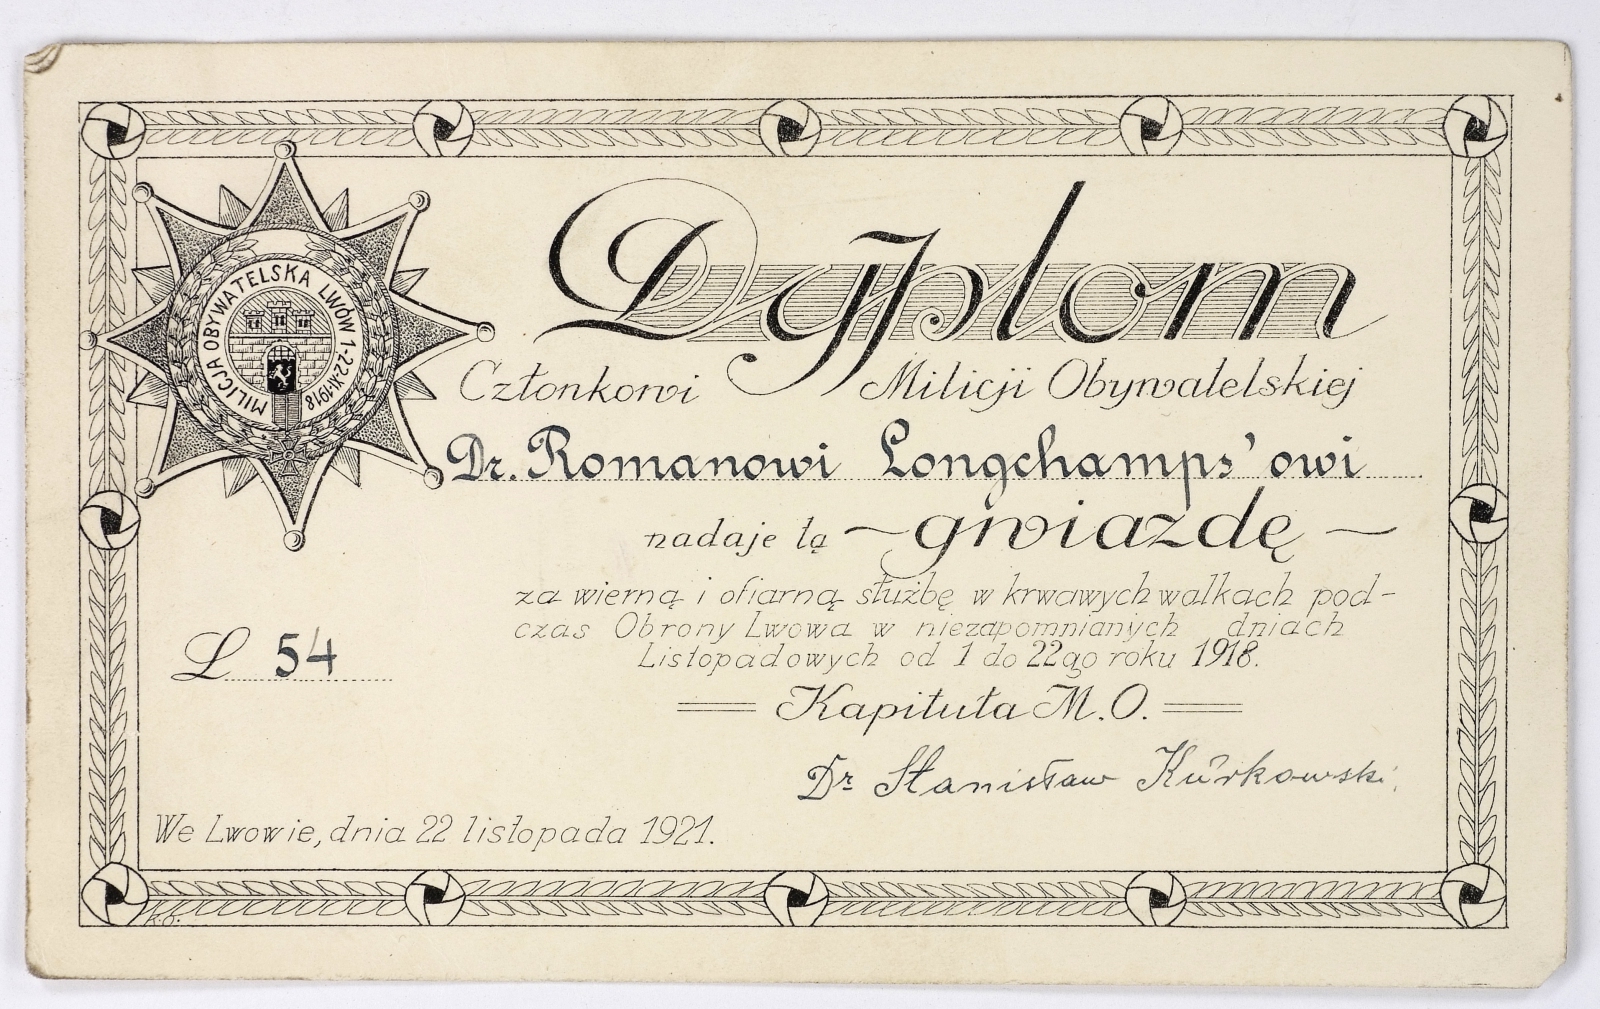 MILICJA OBYWATELSKA LWÓW 1-22 XI 1918
Dyplom
Członkowi Milicji Obywatelskiej
Dr. Romanowi Longchamps'owi
nadaje tą ~ gwiazdę ~
za wierną i ofiarną służbę w krwawych walkach pod-
czas Obrony Lwowa w niezapomnianych dniach
Listopadowych od 1 do 22go roku 1918.
Kapituła M.O.
L 54
Dr Stanisław Kurkowski
We Lwowie, dnia 22 listopada 1921.
K.O.